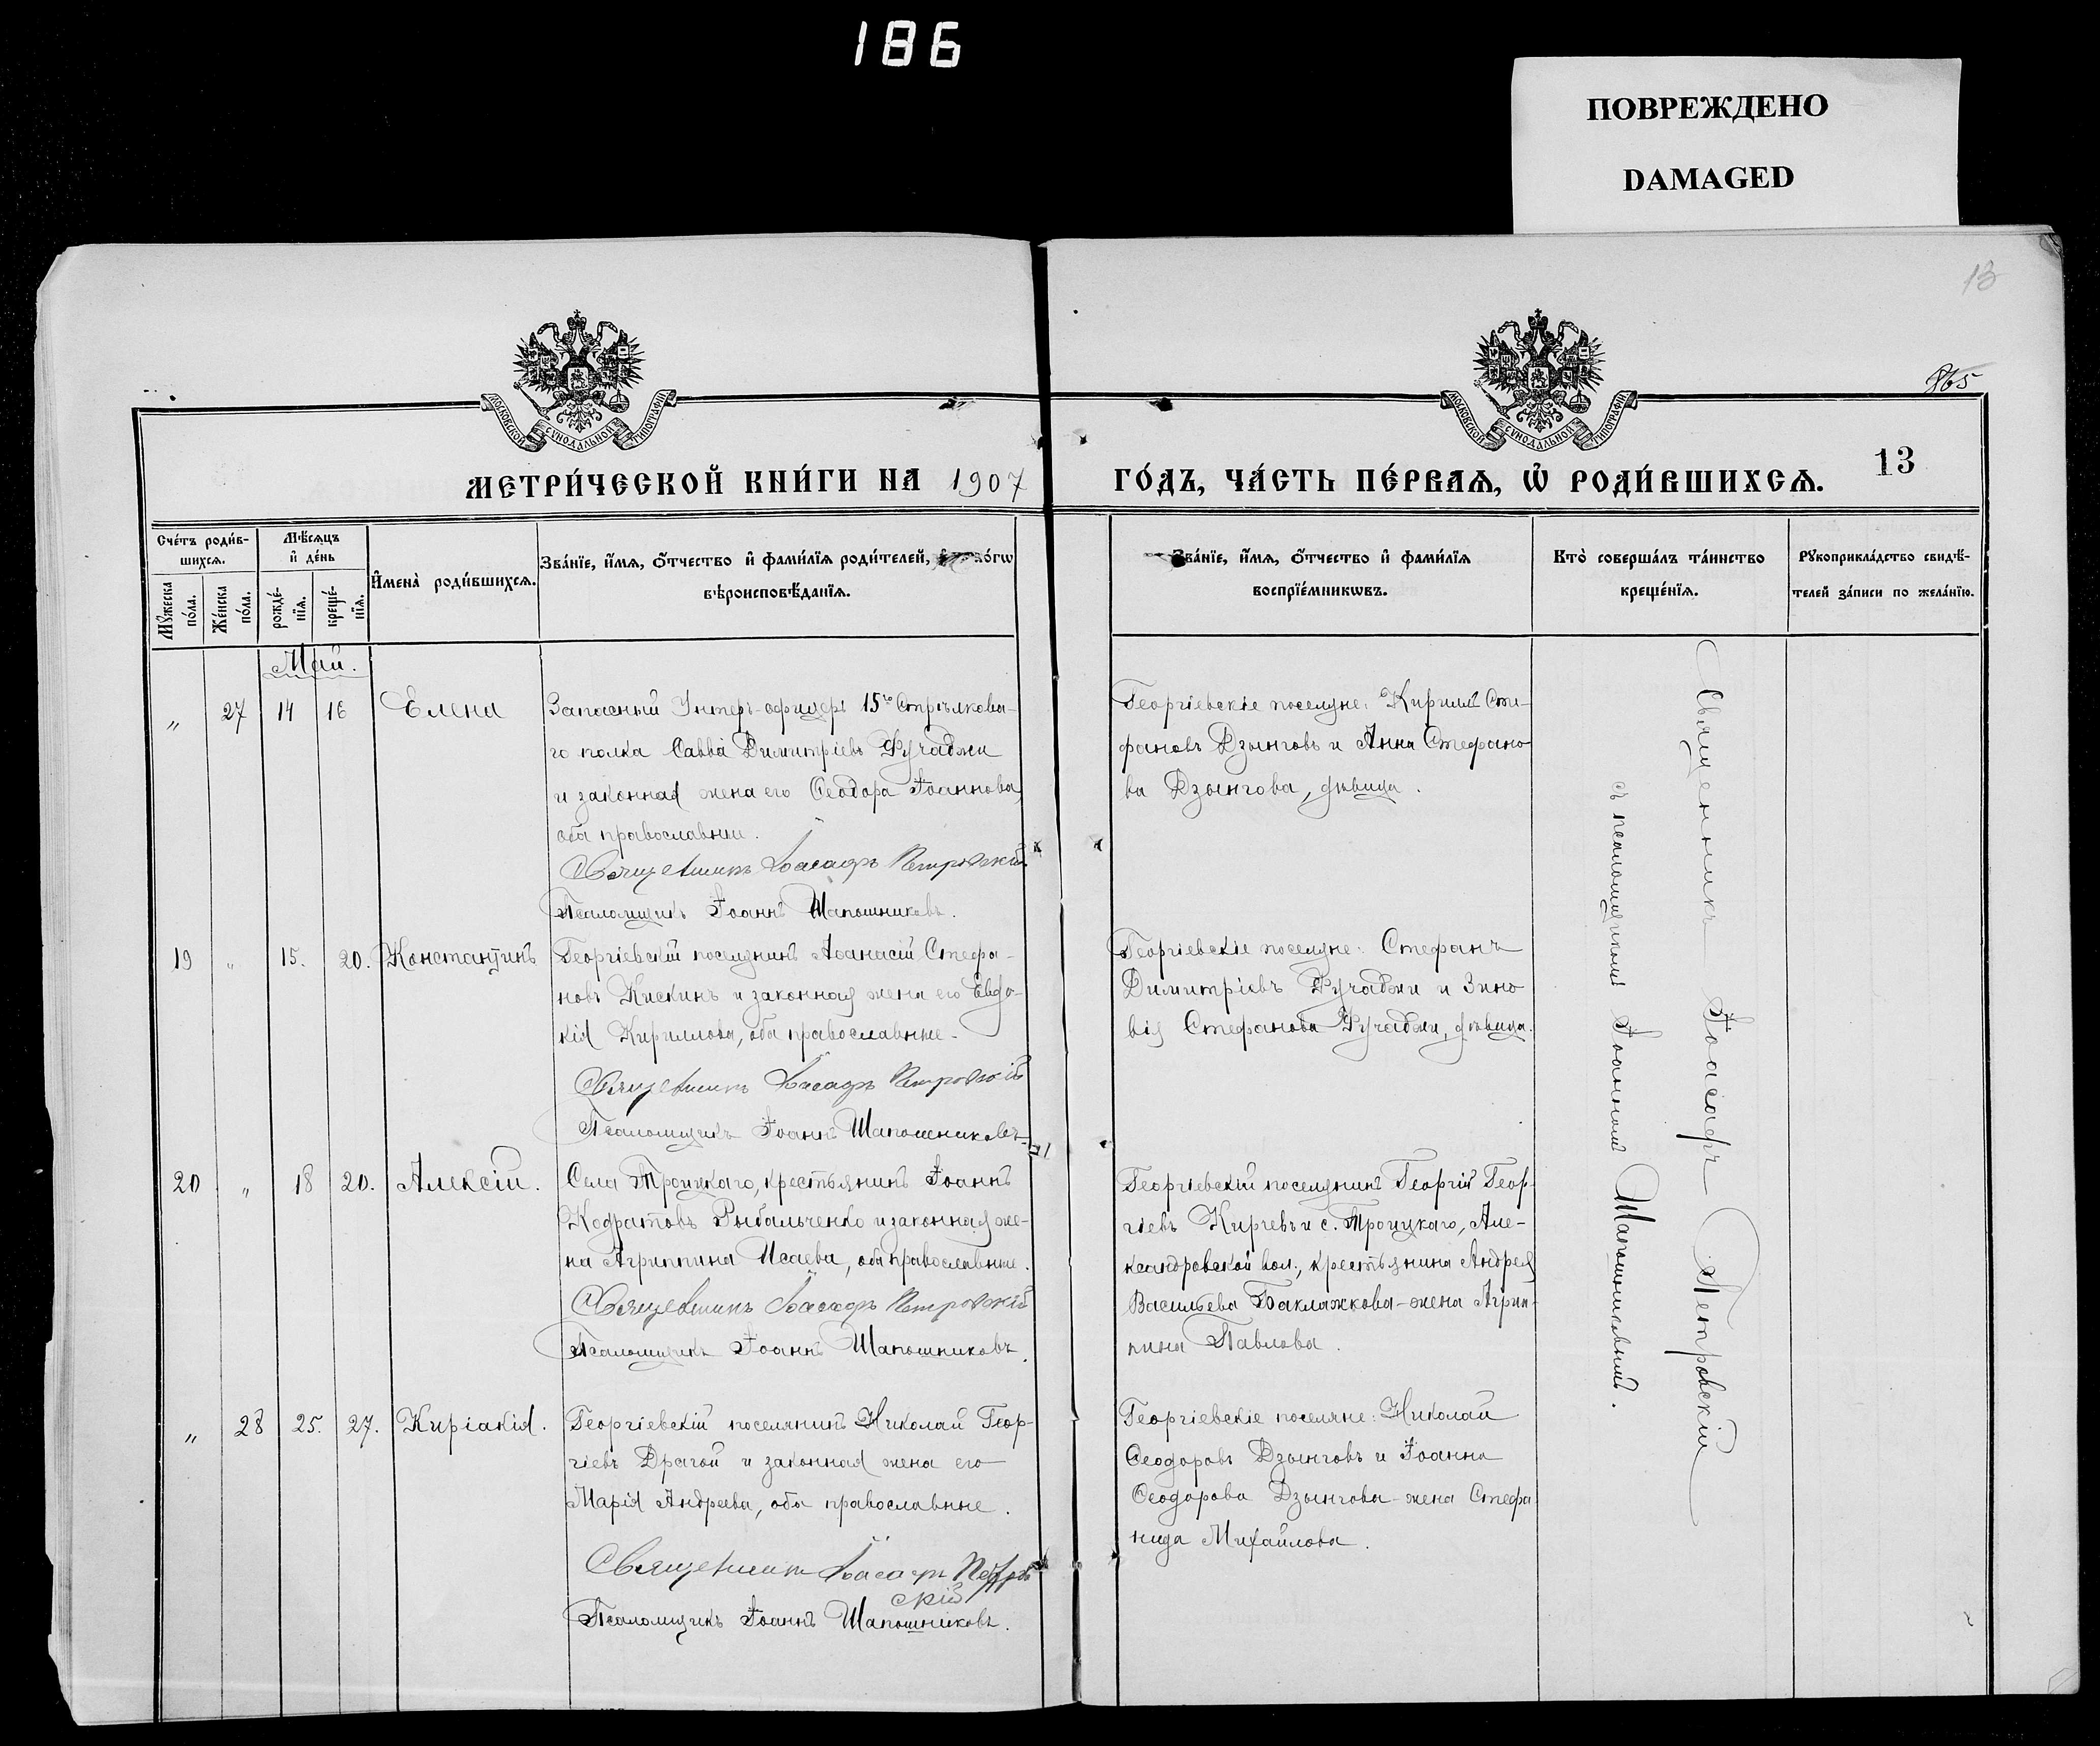 186
ПОВРЕЖДЕНО
DAMAGED
13
865
МОСКОВСКОЙ СУНОДАЛЬНОЙ ТИПОГРАФІИ
МОСКОВСКОЙ СУНОДАЛЬНОЙ ТИПОГРАФІИ
МЕТРИ́ЧЕСКОЙ КНИ́ГИ НА 1907
ГО́ДЪ, ЧА́СТЬ ПЕ́РВАЯ, Ѡ҆ РОДИ́ВШИХСЯ.
13
Сче́тъ роди́в-
шихся.
Мꙋ́жеска по́ла.
Же́нска по́ла.
Мѣ́сяцъ
и҆ де́нь
рожде́-
нїя.
креще́-
нїя.
И҆мена̀ роди́вшихся.
Зва́нїе, и҆́мя, ѻ҆́тчество и҆ фами́лїя роди́телей,
вѣроисповѣ́данїя.
Зва́нїе, и҆́мя, ѻ҆́тчество и҆ фами́лїя
воспрїе́мникѡвъ.
Кто̀ соверша́лъ та́инство
креще́нїя.
Рꙋкоприкла́дство свидѣ́-
телей за́писи по жела́нїю.
Май.
„ 27 14 16 Елена
Запасный Унтеръ-офицеръ 15го Стрѣлкова-
го полка Савва Димитріевъ Фучаджи
и законная жена его Ѳеодора Іоаннова,
оба православные.
Священникъ Іоасафъ Петровскій
Псаломщикъ Іоаннъ Шапошниковъ.
Георгіевскіе поселяне: Кириллъ Сте-
фановъ Дзынговъ и Анна Стефано-
ва Дзынгова, дѣвица.
19 „ 15. 20. Константинъ
Георгіевскій поселянинъ Аѳанасій Стефа-
новъ Кискинъ и законная жена его Евдо-
кія Кириллова, оба православные.
Священникъ Іоасафъ Петровскій
Псаломщикъ Іоаннъ Шапошниковъ
Георгіевскіе поселяне: Стефанъ
Димитріевъ Фучаджи и Зино-
вія Стефанова Фучаджи, дѣвица.
20 „ 18 20. Алексій.
Села Троицкаго, крестьянинъ Іоаннъ
Кодратовъ Рыбальченко и законная же-
на Агриппина Исаева, оба православные.
Священникъ Іоасафъ Петровскій
Псаломщикъ Іоаннъ Шапошниковъ.
Георгіевскій поселянинъ Георгій Геор-
гіевъ Киргевъ и с. Троицкаго, Але-
ксандровской вол., крестьянина Андрея
Васильева Баклажкова-жена Агрип-
пина Павлова.
„ 28 25. 27. Киріакія.
Георгіевскій поселянинъ Николай Геор-
гіевъ Драгой и законная жена его
Марія Андреева, оба православные.
Священникъ Іоасафъ Петров
скій
Псаломщикъ Іоаннъ Шапошниковъ.
Георгіевскіе поселяне: Николай
Ѳеодоровъ Дзынговъ и Іоанна
Ѳеодорова Дзынгова-жена Стефа
нида Михайлова.
Священникъ Іоасафъ Петровскій
съ псаломщикомъ Іоанномъ Шапошниковымъ.